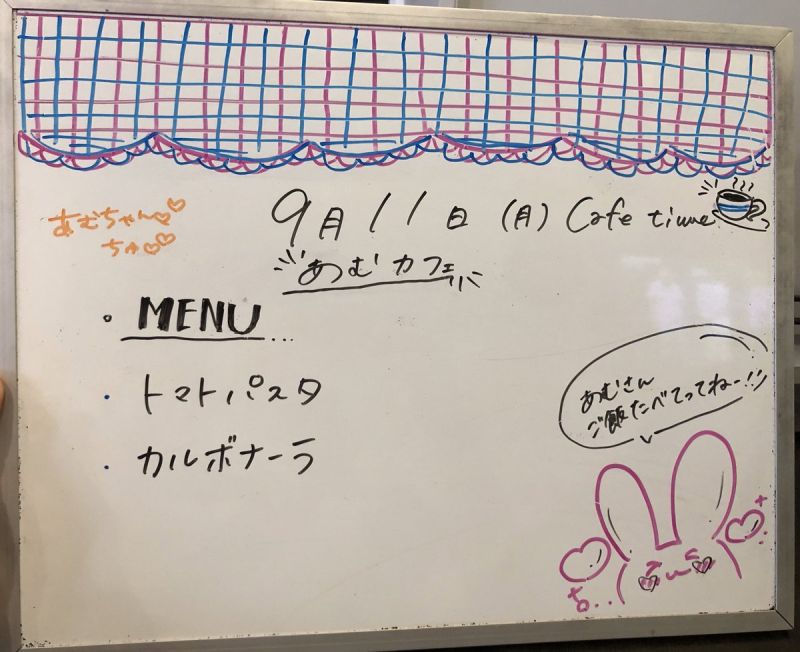 9月11日(月) Cafe time
あむちゃん♡♡
ちゅ♡♡
あむカフェ
・MENU...
・トマトパスタ
・カルボナーラ
あむさん
ご飯たべてってねー!!